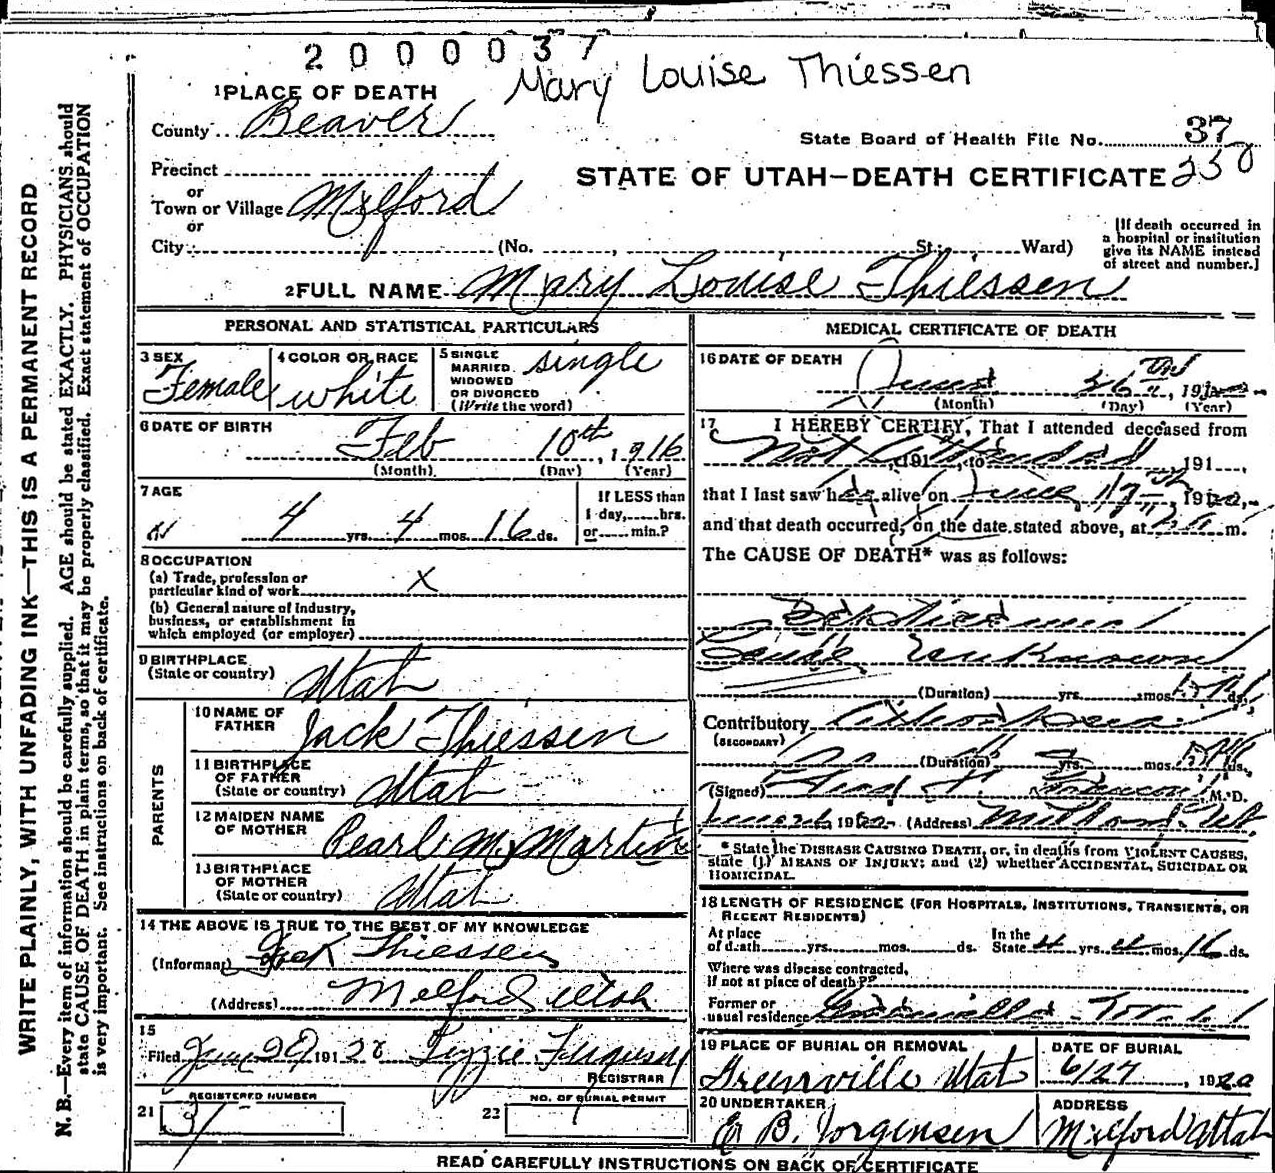 2000037
Mary Louise Thiessen
1 PLACE OF DEATH
County Beaver
State Board of Health File No. 37
Precinct
or
STATE OF UTAH—DEATH CERTIFICATE 250
Town or Village Milford
or
City (No. , St.; Ward)
[If death occurred in
a hospital or institution
give its NAME instead
of street and number.]
2 FULL NAME Mary Louise Thiessen
WRITE PLAINLY, WITH UNFADING INK—THIS IS A PERMANENT RECORD
N. B.—Every item of information should be carefully supplied. AGE should be stated EXACTLY. PHYSICIANS should
state CAUSE OF DEATH in plain terms, so that it may be properly classified. Exact statement of OCCUPATION
is very important. See instructions on back of certificate.
PERSONAL AND STATISTICAL PARTICULARS
3 SEX Female
4 COLOR OR RACE white
5 SINGLE
MARRIED
WIDOWED
OR DIVORCED
(Write the word) single
6 DATE OF BIRTH
Feb 10th, 1916
(Month) (Day) (Year)
7 AGE
4 yrs. 4 mos. 16 ds.
If LESS than
1 day, hrs.
or min.?
8 OCCUPATION
(a) Trade, profession or
particular kind of work x
(b) General nature of industry,
business, or establishment in
which employed (or employer)
9 BIRTHPLACE
(State or country) Utah
PARENTS
10 NAME OF
FATHER Jack Thiessen
11 BIRTHPLACE
OF FATHER
(State or country) Utah
12 MAIDEN NAME
OF MOTHER Pearl M. Martin
13 BIRTHPLACE
OF MOTHER
(State or country) Utah
14 THE ABOVE IS TRUE TO THE BEST OF MY KNOWLEDGE
(Informant) Jack Thiessen
(Address) Milford Utah
15
Filed June 191 Lizzie Ferguson
REGISTRAR
REGISTERED NUMBER
21
NO. OF BURIAL PERMIT
22
MEDICAL CERTIFICATE OF DEATH
16 DATE OF DEATH
June 26
(Month) (Day) (Year)
17 I HEREBY CERTIFY, That I attended deceased from
Not Attended 191 , to 191
that I last saw her alive on June 17
and that death occurred, on the date stated above, at m.
The CAUSE OF DEATH* was as follows:
Cause Unknown
(Duration) yrs. mos. ds.
Contributory
(SECONDARY)
(Duration) yrs. mos. ds.
(Signed) M. D.
(Address) Milford Ut.
* State the DISEASE CAUSING DEATH, or, in deaths from VIOLENT CAUSES,
state (1) MEANS OF INJURY; and (2) whether ACCIDENTAL, SUICIDAL OR
HOMICIDAL.
18 LENGTH OF RESIDENCE (FOR HOSPITALS, INSTITUTIONS, TRANSIENTS, OR
RECENT RESIDENTS)
At place
of death yrs. mos. ds.
In the
State 4 yrs. 4 mos. 16 ds.
Where was disease contracted,
if not at place of death?
Former or
usual residence Greenville
19 PLACE OF BURIAL OR REMOVAL
Greenville Utah
DATE OF BURIAL
6/27, 1920
20 UNDERTAKER
E B. Jorgensen
ADDRESS
Milford Utah
READ CAREFULLY INSTRUCTIONS ON BACK OF CERTIFICATE